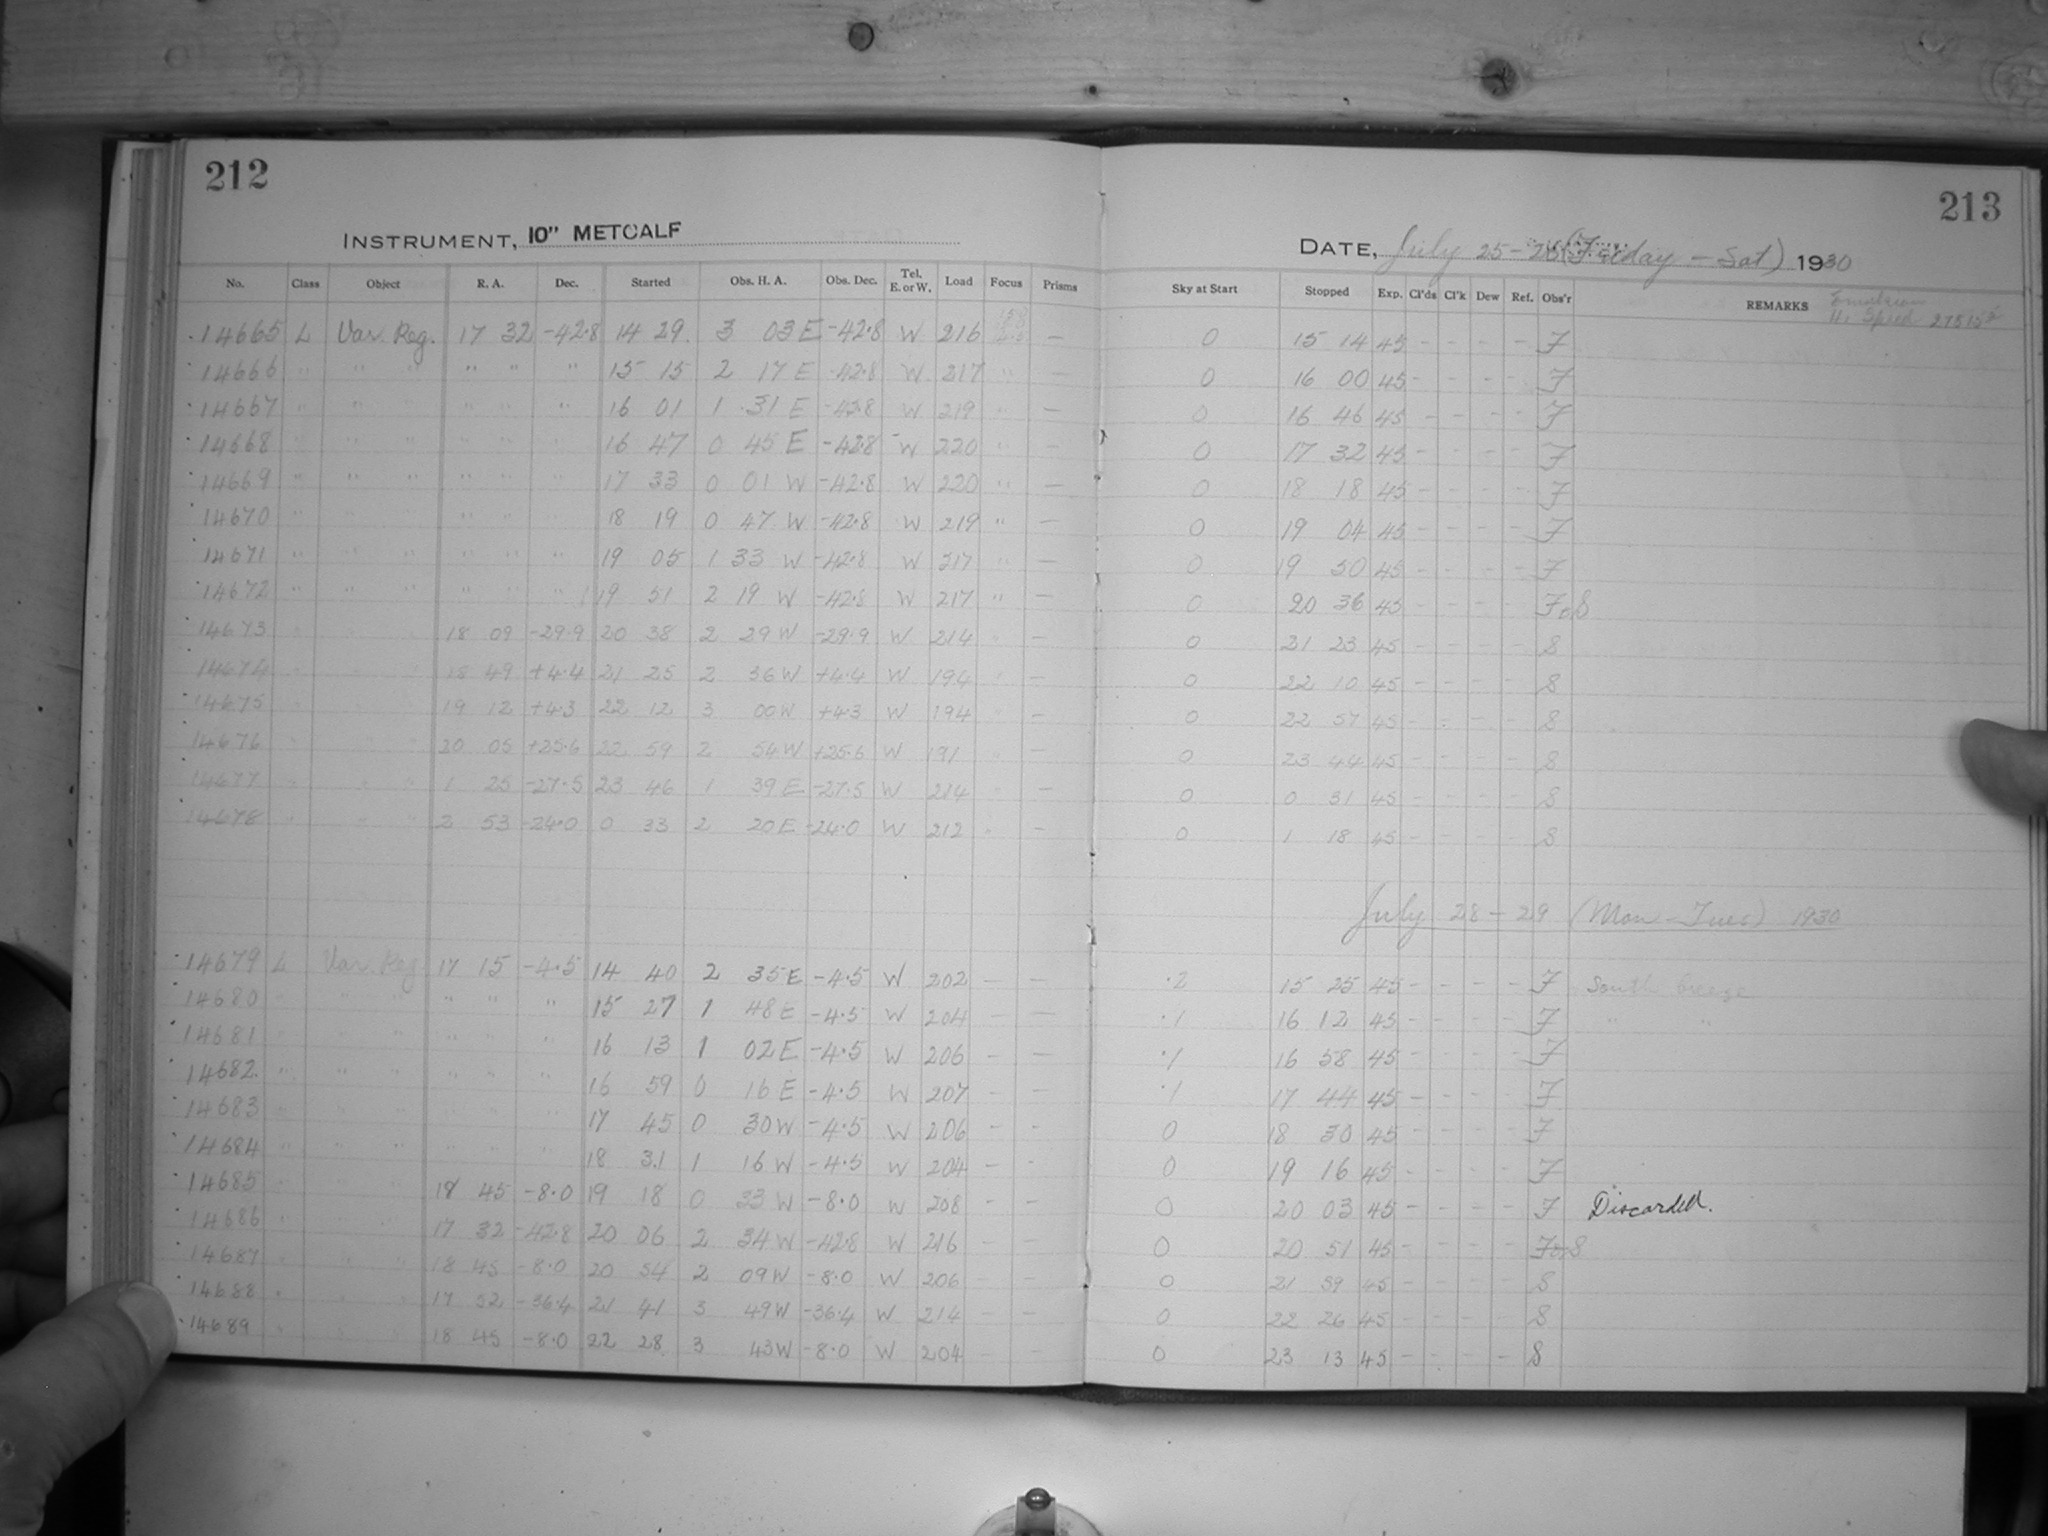 212
213
INSTRUMENT, 10" METCALF
DATE, July 25-26 (Friday - Sat) 1930
No. Class Object R. A. Dec. Started Obs. H. A. Obs. Dec. Tel. E. or W. Load Focus Prisms Sky at Start Stopped Exp. Cl'ds Cl'k Dew Ref. Obs'r REMARKS Emulsion
Hi Speed
14665 L Var. Reg. 17 32 -42.8 14 29. 3 03 E -42.8 W 216 — 0 15 14 45 - - - - F
14666 " " " " " " 15 15 2 17 E -42.8 W 217 " — 0 16 00 45 - - - - F
14667 " " " " " " 16 01 1 31 E -42.8 W 219 " — 0 16 46 45 - - - - F
14668 " " " " " " 16 47 0 45 E -42.8 W 220 " — 0 17 32 45 - - - - F
14669 " " " " " " 17 33 0 01 W -42.8 W 220 " — 0 18 18 45 - - - - F
14670 " " " " " " 18 19 0 47 W -42.8 W 219 " — 0 19 04 45 - - - - F
14671 " " " " " " 19 05 1 33 W -42.8 W 217 " — 0 19 50 45 - - - - F
14672 " " " " " " 19 51 2 19 W -42.8 W 217 " — 0 20 36 45 - - - - F & S
14673 " " " 18 09 -29.9 20 38 2 29 W -29.9 W 214 " — 0 21 23 45 - - - - S
14674 " " " 18 49 +4.4 21 25 2 36 W +4.4 W 194 " — 0 22 10 45 - - - - S
14675 " " " 19 12 +4.3 22 12 3 00 W +4.3 W 194 " — 0 22 57 45 - - - - S
14676 " " " 20 05 +25.6 22 59 2 54 W +25.6 W 191 " — 0 23 44 45 - - - - S
14677 " " " 1 25 -27.5 23 46 1 39 E -27.5 W 214 " — 0 0 31 45 - - - - S
14678 " " " 2 53 -24.0 0 33 2 20 E -24.0 W 212 " — 0 1 18 45 - - - - S
July 28-29 (Mon-Tues) 1930
14679 L Var. Reg. 17 15 -4.5 14 40 2 35 E -4.5 W 202 — — .2 15 25 45 - - - - F South breeze
14680 " " " " " " 15 27 1 48 E -4.5 W 204 — — .1 16 12 45 - - - - F " "
14681 " " " " " " 16 13 1 02 E -4.5 W 206 — — .1 16 58 45 - - - - F
14682 " " " " " " 16 59 0 16 E -4.5 W 207 — — .1 17 44 45 - - - - F
14683 " " " " " " 17 45 0 30 W -4.5 W 206 — — 0 18 30 45 - - - - F
14684 " " " " " " 18 31 1 16 W -4.5 W 204 — — 0 19 16 45 - - - - F
14685 " " " 18 45 -8.0 19 18 0 33 W -8.0 W 208 — — 0 20 03 45 - - - - F Discarded.
14686 " " " 17 32 -42.8 20 06 2 34 W -42.8 W 216 — — 0 20 51 45 - - - - F & S
14687 " " " 18 45 -8.0 20 54 2 09 W -8.0 W 206 — — 0 21 39 45 - - - - S
14688 " " " 17 52 -36.4 21 41 3 49 W -36.4 W 214 — — 0 22 26 45 - - - - S
14689 " " " 18 45 -8.0 22 28 3 43 W -8.0 W 204 — — 0 23 13 45 - - - - S